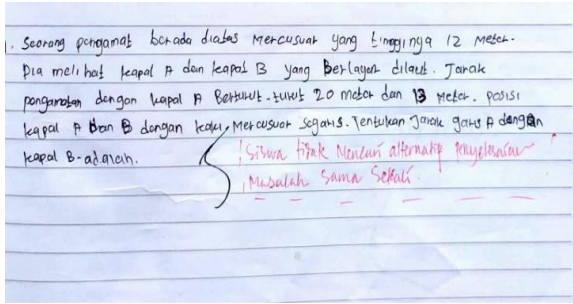 1. Seorang pengamat berada diatas Mercusuar yang tingginya 12 Meter.
Dia melihat kapal A dan kapal B yang Berlayar dilaut. Jarak
pengamatan dengan kapal A Berturut-turut 20 meter dan 13 Meter. posisi
kapal A dan B dengan kaki Mercusuar segaris. Tentukan Jarak garis A dengan
kapal B adalah.
Siswa tidak Mencari alternatif Penyelesaian
Masalah Sama Sekali.